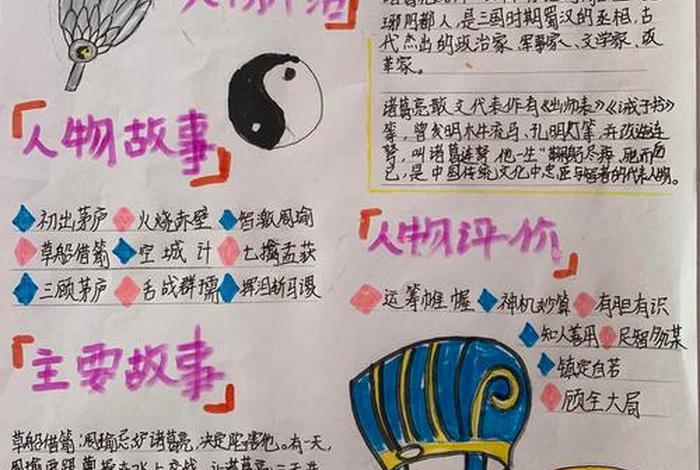 人物评价
琊阳都人,是三国时期蜀汉的丞相,古
代杰出的政治家、军事家、文学家、改
革家。
诸葛亮散文代表作有《出师表》《诫子书》
等,曾发明木牛流马、孔明灯等,并改造连
弩,叫诸葛连弩,他一生"鞠躬尽瘁,死而后
已,是中国传统文化中忠臣与智者的代表人物。
人物故事
初出茅庐 火烧赤壁 智激周瑜
草船借箭 空城计 七擒孟获
三顾茅庐 舌战群儒 挥泪斩马谡
人物评价
运筹帷幄 神机妙算 有胆有识
知人善用 足智多谋
镇定自若
顾全大局
主要故事
草船借箭:周瑜忌妒诸葛亮,决定陷害他。有一天,